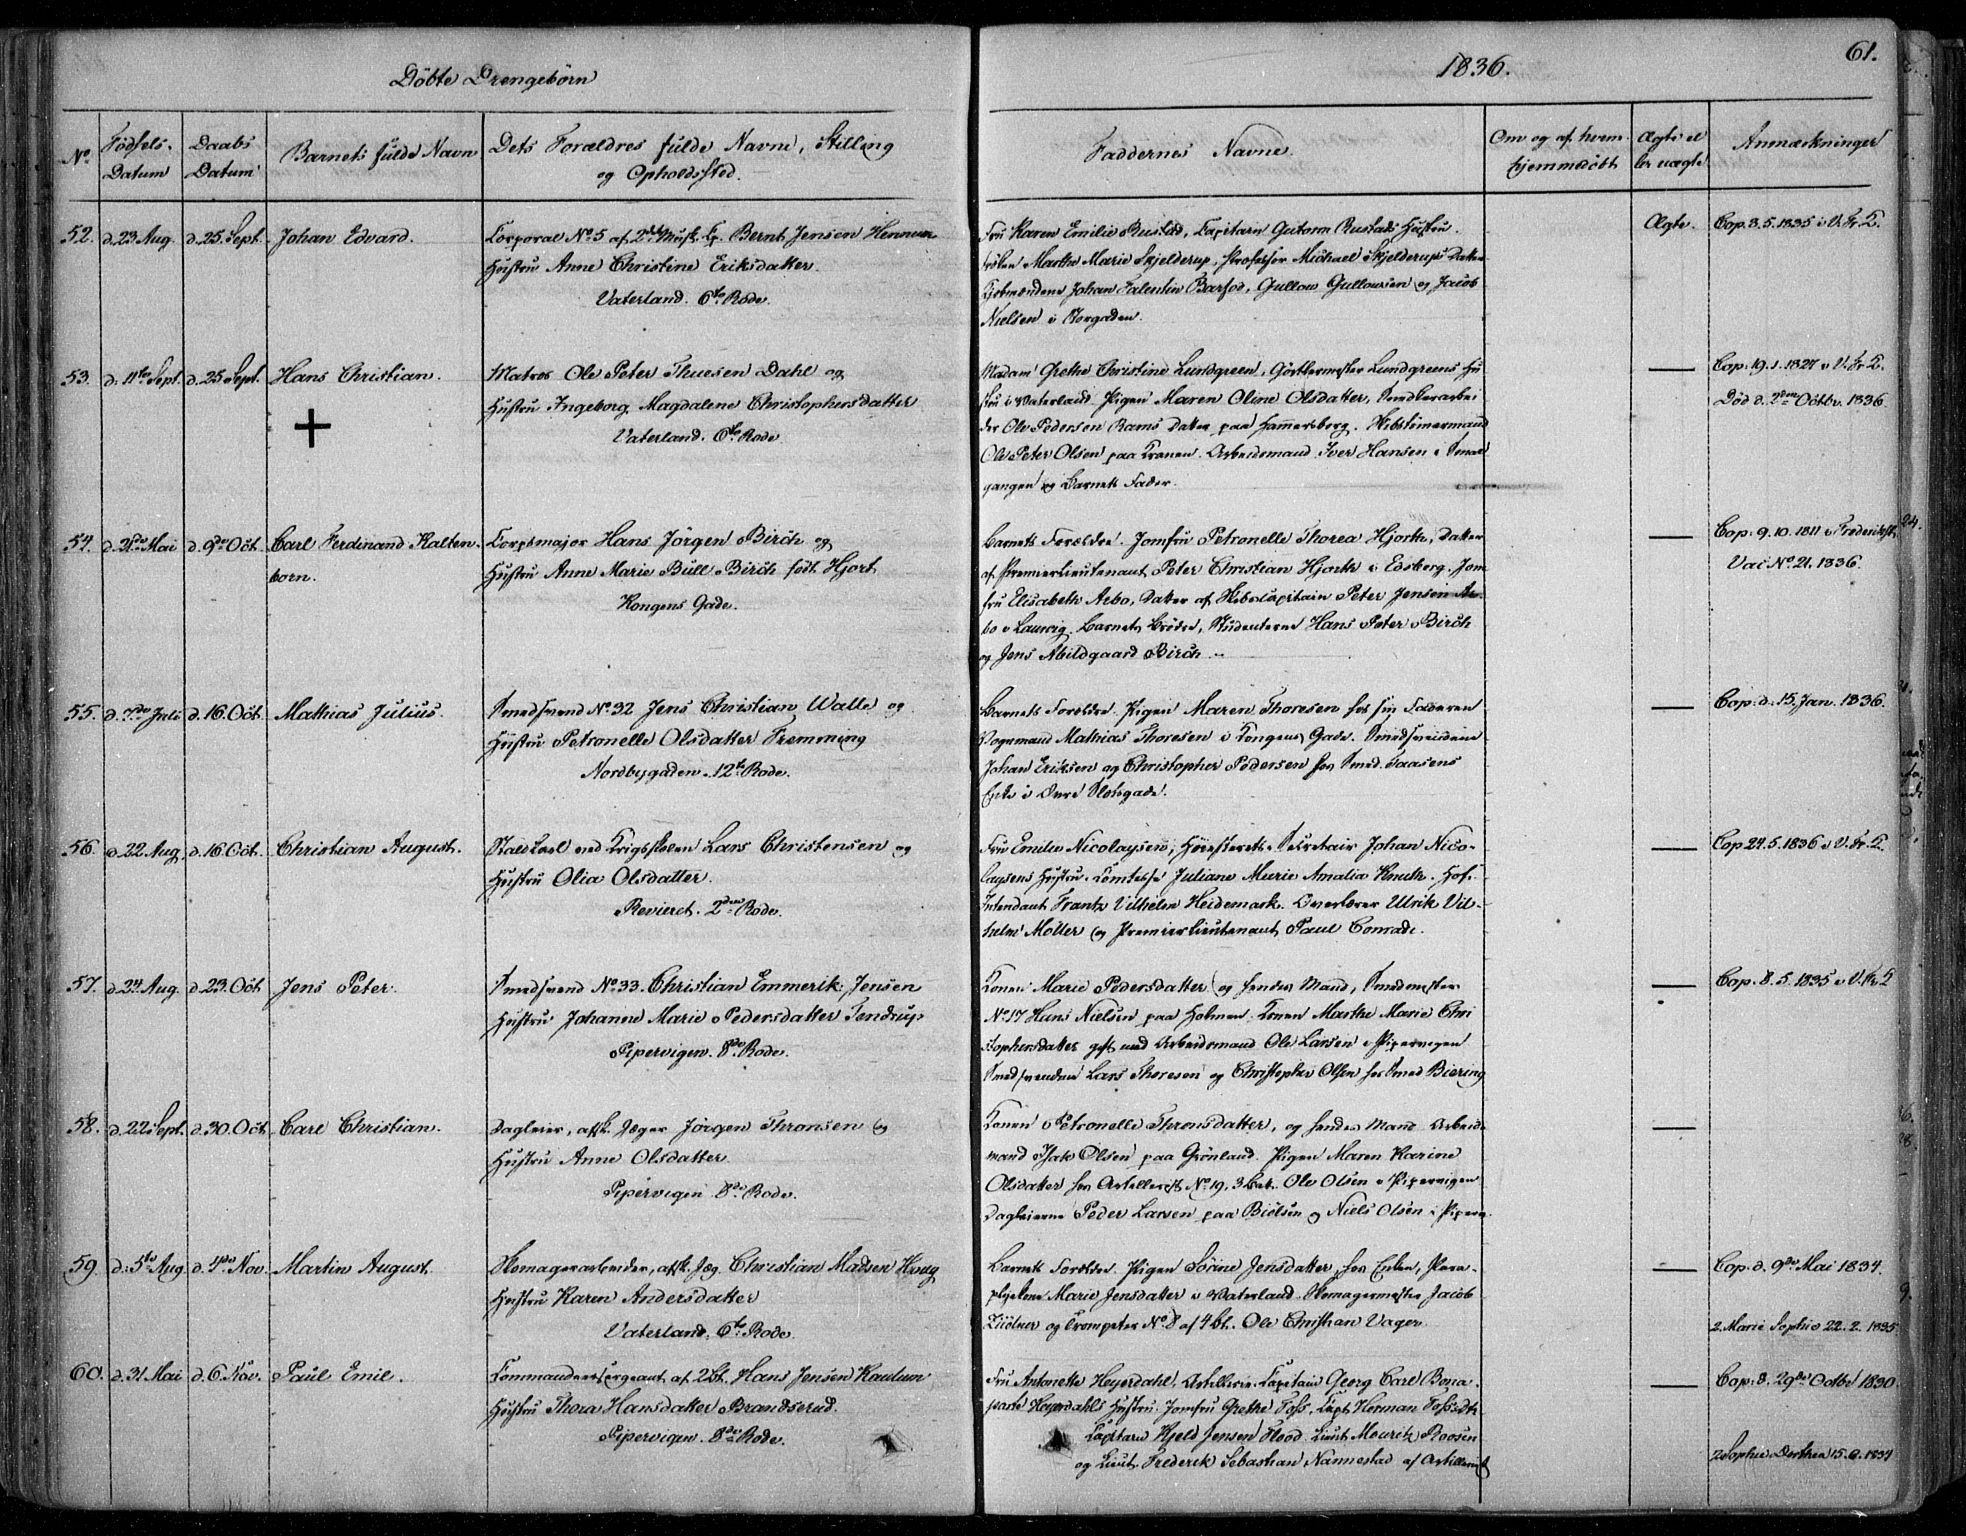 Döbte Drengebörn
1836.
61.
No
Födsels-
Datum
Daabs
Datum
Barnets fulde Navn
Dets Forældres fulde Navne, Stilling
og Opholdssted.
Faddernes Navne.
Om og af hvem
hjemmedöbt
Ægte el
ler uægte
Anmærkninger
52. d. 23 Aug. d. 25. Sept. Johan Edvard.
Corporal No. 5 af 2det Musk. Cp. Bernt Jensen Hennum
Hustru Anne Christine Eriksdatter.
Vaterland. 6te Rode.
Fru Karen Emilie Rustad, Capitain Gutorm Rustads Hustru.
Fröken Marthe Marie Skjelderup, Professor Michael Skjelderups Datter
Kjöbmændene Johan Falentin Barfod, Gullow Gullowsen og Jacob
Nielsen i Storgaden.
Ægte.
Cop. 3. 5. 1835 i V. Fr. K.
53. d. 11te Sept. d. 25 Sept. Hans Christian.
Matros Ole Peter Thuesen Dahl og
Hustru Ingeborg Magdalene Christophersdatter
Vaterland. 6te Rode
Madam Grethe Christine Lundgreen, Görtlermester Lundgreens Hu
stru i Vaterland. Pigen Maren Oline Olsdatter, Snedkerarbei
der Ole Pedersen Rams Datter paa Hammersborg. Skibstömermand
Ole Peter Olsen paa Kranen. Arbeidsmand Iver Hansen i Smal
gangen og Barnets Fader.
Cop. 19. 1. 1827 i V. Fr. K.
Död d. 2den Octbr. 1836
54. d. 31te Mai d. 9de Oct. Carl Ferdinand Kalten-
born.
Corpsmajor Hans Jörgen Birch og
Hustru Anne Marie Bull Birch födt Hjort
Kongens Gade.
Barnets Forældre. Jomfru Petronelle Thorea Hjorth, Datter
af Premierlieutenant Peter Christian Hjorth i Edsberg. Jom
fru Elisabeth Arbo, Datter af Skibscapitain Peter Jensen Ar-
bo i Laurvig. Barnets Brödre, Studenterne Hans Peter Birch
og Jens Abildgaard Birch
Cop. 9. 10. 1811 i Frederikst.
Vac No. 21. 1836.
55. d. 7de Juli d. 16. Oct. Mathias Julius.
Smedsvend No. 32 Jens Christian Walle og
Hustru Petronelle Olsdatter Fremming
Nordbygaden. 12te Rode.
Barnets Forældre. Pigen Maren Thoresen hos sin Faderen
Vognmand Mathias Thoresen i Kongens Gade. Smedsvendene
Johan Eriksen og Christopher Pedersen hos Smed Faasens
Enke i Övre Slotsgade.
Cop. d. 15. Jan. 1836.
56. d. 22 Aug. d. 16 Oct. Christian August.
Staldkarl ved Krigsskolen Lars Christensen og
Hustru Olia Olsdatter.
Revieret. 2den Rode.
Fru Emilie Nicolaysen, Höiesterets Secretair Johan Nico-
laysens Hustru. Comtesse Juliane Marie Amalia Knuth. Hof-
Intendant Frantz Vilhelm Heidemark. Overlærer Ulrik Vil-
helm Möller og Premierlieutenant Paul Conradi.
Cop 24. 5. 1836 i V. Fr. K.
57. d. 24 Aug. d. 23. Oct. Jens Peter.
Smedsvend No. 33. Christian Emmerik Jensen
Hustru Johanne Marie Pedersdatter Tendrup
Pipervigen. 8de Rode.
Konen Marie Pedersdatter og hendes Mand, Smedmester
No. 17 Hans Nielsen paa Holmen. Konen Marthe Marie Chri
stophersdatter gift med Arbeidsmand Ole Larsen i Pipervigen
Smedsvendene Lars Thoresen og Christopher Olsen hos Smed Biering
Cop. 8. 5. 1835 i V. Fr. K
58. d. 22 Sept. d. 30. Oct Carl Christian.
Dagleier, afsk. Jæger Jörgen Thronsen og
Hustru Anne Olsdatter
Pipervigen 8de Rode.
Konen Petronelle Thronsdatter, og hendes Mand Arbeids
mand Isak Olsen paa Grönland. Pigen Maren Karine
Olsdatter hos Artillerist No. 19. 3 Bat. Ole Olsen i Pipervigen
Dagleierne Peder Larsen paa Biölsen og Niels Olsen i Piperv.
59. d. 5te Aug. d. 4de Nov. Martin August.
Skomagerarbeider, afsk. Jæg. Christian Madsen Haug
Hustru Karen Andersdatter
Vaterland. 6te Rode.
Barnets Forældre. Pigen Sörine Jensdatter, hos Enken,
Marie Jensdatter i Vaterland. Skomagermester Jacob
og Trompeter No. 8 af 4 Bt. Ole Christian Vager.
Cop. d. 9de Mai 1834.
2. Marie Sophie 22. 2. 1835
60. d. 31 Mai d. 6 Nov. Paul Emil.
Commandeersergeant af 2 Bt. Hans Jensen Kaulum
Hustru Thora Hansdatter Brandserud.
Pipervigen. 8de Rode.
Fru Antonette Heyerdahl, Artillerie-Capitain Georg Carl Bona-
parte Heyerdahls Hustru. Jomfru Grethe Foss, Capt. Herman Foss's Dtr.
Capitain Kjeld Jensen Flood. Lieut. Mouritz Roosen
og Lieut. Frederik Sebastian Nannestad af Artilleriet
Cop. 8. 29de Octbr 1830.
2 Sophie Dorthea 15. 6. 1834